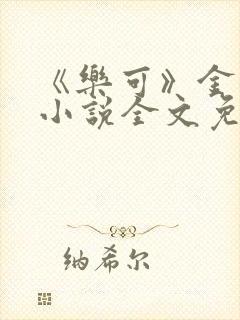 《樂可》金
小說全文免
纳希尔